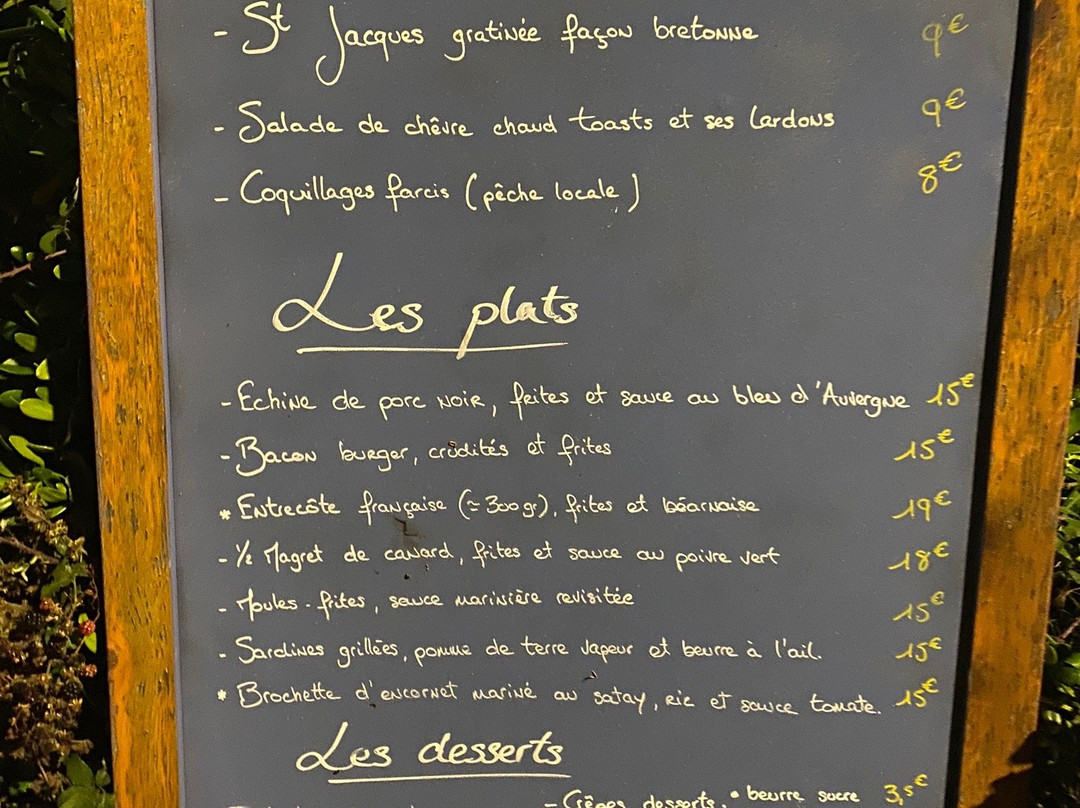 - St Jacques gratinée façon bretonne 9€
- Salade de chêvre chaud toasts et ses lardons 9€
- Coquillages farcis (pêche locale) 8€
Les plats
- Echine de porc noir, frites et sauce au bleu d'Auvergne 15€
- Bacon burger, crudités et frites 15€
* Entrecôte française (≃ 300gr), frites et béarnaise 19€
- ½ Magret de canard, frites et sauce au poivre vert 18€
- Moules-frites, sauce marinière revisitée 15€
- Sardines grillées, pomme de terre vapeur et beurre à l'ail. 15€
* Brochette d'encornet mariné au satay, riz et sauce tomate. 15€
Les desserts
- Crêpes desserts. • beurre sucre 3,5€